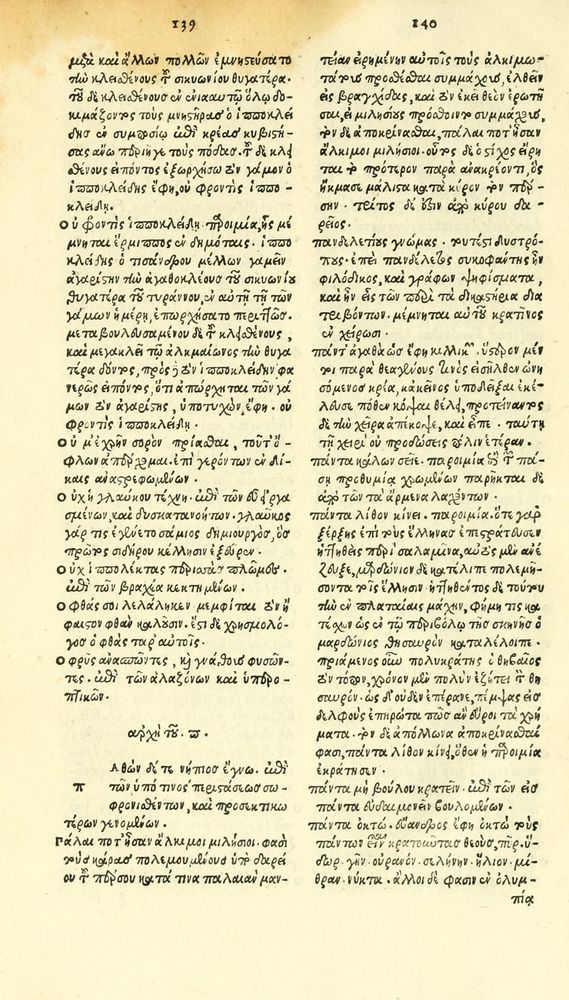 139
μεζὰ καὶ ἄλλων πολλῶν ἐμνηστεύσατο
τὴν κλεισθένους τοῦ σικυωνίου θυγατέρα.
τοῦ δὲ κλεισθένους ἐν ἐνιαυτῷ ὅλῳ δο-
κιμάζοντος τοὺς μνηστῆρας ὁ ἱπποκλεί
δης ἐν συμποσίῳ ἐπὶ κρέας κυβιστή-
σας ἄνω περιῆγε τοὺς πόδας. τοῦ δὲ κλει
σθένους εἰπόντος ἐξωρχήσω τὸν γάμον ὁ
ἱπποκλείδης ἔφη, οὐ φροντὶς ἱππο-
κλείδῃ.
Οὐ φροντὶς ἱπποκλείδῃ. παροιμία, ἧς μέ
μνηται ἕρμιππος ἐν δημόταις. ἱππο
κλείδης ὁ τισάνδρου μέλλων γαμεῖν
ἀγαρίστην τὴν ἀγαθοκλέους τοῦ σικυωνίου
θυγατέρα τοῦ τυράννου, ἐν αὐτῇ τῇ τῶν
γάμων ἡμέρῃ, ἐπωρχήσατο περιττῶς.
μεταβουλευσαμένου δὲ τοῦ κλεισθένους,
καὶ μεγακλεῖ τῷ ἀλκμαίωνος τὴν θυγα
τέρα δόντος, πρὸς δὲ τὸν ἱπποκλείδην φα
νερῶς εἰπόντος, ὅτι ἀπώρχηται τῶν γά
μων τὸν ἀγαρίστης, ὑποτυχὼν ἔφη. οὐ
φροντὶς ἱπποκλείδῃ.
Οὐ μὲ χρὴν σορὸν πρίασθαι, τοῦτ' ὄ-
φλων ἀπέρχομαι. ἐπὶ γερόντων ἐν δί-
καις ἀναστρεφομένων.
Οὐχὶ γλαύκου τέχνη. ἐπὶ τῶν εὖ εἰργα
σμένων, καὶ δυσκατανοήτων. γλαῦκος
γάρ τις ἐγένετο σάμιος δημιουργὸς, ὃς
πρῶτος σιδήρου κόλλησιν ἐξεῦρεν.
Οὐχ ἱππολέκτας περιοσὰς πλῶμος.
ἐπὶ τῶν βραχέα κεκτημένων.
Ὁ φθάς σοι λελάληκεν μέμφεται τὸν ἥ
φαιστον φθὰν καλοῦσιν. ἔστι δὲ χρησμολό-
γος ὁ φθὰς παρ' αὐτοῖς.
Ὀφρῦς ἀνασπῶντες, καὶ γνάθους φυσῶν-
τες. ἐπὶ τῶν ἀλαζόνων καὶ ὑπερο-
πτικῶν.
ἀρχὴ τοῦ. π.
Π Αθὼν δέ τε νήπιος ἔγνω. ἐπὶ
τῶν ὑπό τινος περιστάσεως σω-
φρονισθέντων, καὶ προσεκτικω
τέρων γενομένων.
Πάλαι ποτ' ἦσαν ἄλκιμοι μιλήσιοι. φασὶ
τοὺς κᾶρας πολεμουμένους ὑπὸ δαρεί
ου τοῦ πέρσου κατά τινα παλαιὰν μαν-
140
τείαν εἰρημένην αὐτοῖς τοὺς ἀλκιμω-
τάτους προσθέσθαι συμμάχους, ἐλθεῖν
εἰς βραγχίδας, καὶ τὸν ἐκεῖ θεὸν ἐρωτῆ
σαι, εἰ μιλησίους πρόσθοιντο συμμάχους,
τὸν δὲ ἀποκρίνασθαι, πάλαι ποτ' ἦσαν
ἄλκιμοι μιλήσιοι. οὗτος δὲ ὁ στίχος εἴρη
ται τὸ πρότερον παρὰ ἀνακρέοντι, ὃς
ἤκμασε μάλιστα κατὰ κῦρον τὸν πέρ-
σην. τρίτος δέ ἐστιν ἀπὸ κύρου δα-
ρεῖος.
πανδελετίους γνώμας. τουτέστι δυστρό-
πους. ἐπεὶ πανδέλετος συκοφάντης ἦν
φιλόδικος, καὶ γράφων ψηφίσματα,
καὶ ἦν εἷς τῶν περὶ τὰ δικαστήρια δια
τριβόντων. μέμνηται αὐτοῦ κρατῖνος
ἐν χείρωσι.
πάντ' ἀγαθὰ ὡς ἔφη κιλλικῶν. ὕστερον μέν
τοι παρὰ θεαγένους τινὸς εἰσῆλθεν ὠνη
σόμενος κρέα, κἀκεῖνος ὑποδεῖξαι ἐκέ-
λευσε πόθεν κόψαι θέλει, προτείναντος
δὲ τὴν χεῖρα ἀπέκοψε, καὶ εἶπε. ταύτῃ
τῇ χειρὶ οὐ προδώσεις πόλιν ἑτέραν.
πάντα κάλων σεῖε. παροιμία ἐπὶ τοῦ πά-
σῃ προθυμίᾳ χρωμένων παρῆκται δὲ
ἀπὸ τῶν τὰ ἄρμενα λαχόντων.
πάντα λίθον κίνει. παροιμία. ὅτε γὰρ
ξέρξης ἐπὶ τοὺς ἕλληνας ἐπεστράτευσεν
ἡττηθεὶς περὶ σαλαμῖνα, αὐτὸς μὲν ἀνέ
ζευξε, μαρδόνιον δὲ κατέλιπε πολεμή-
σοντα τοῖς ἕλλησιν. ἡττηθέντος δὲ τούτου
τὴν ἐν πλαταιαῖς μάχην, φήμη τις κα
τέχων ὡς ἐν τῷ περιβόλῳ τῆς σκηνῆς ὁ
μαρδόνιος θησαυρὸν καταλέλοιπε.
πριάμενος οὖν πολυκράτης ὁ θηβαῖος
τὸν τόπον, χρόνον μὲν πολὺν ἐζήτει τὸν θη
σαυρόν. ὡς δ' οὐδὲν ἐπέρανε, πέμψας εἰς
δελφοὺς ἐπηρώτα πῶς ἂν εὕροι τὰ χρή
ματα. τὸν δὲ ἀπόλλωνα ἀποκρίνασθαί
φασι, πάντα λίθον κίνει, ὅθεν ἡ παροιμία
ἐκράτησεν.
πάντα μὴ βούλου κρατεῖν. ἐπὶ τῶν εἰς
πάντα εὐδαιμονεῖν βουλομένων.
πάντα ὀκτώ. εὔανδρος ἔφη ὀκτὼ τοὺς
πάντων εἶναι κρατοῦντας θεοὺς, πῦρ. ὕ-
δωρ. γῆν. οὐρανόν. σελήνην. ἥλιον. μί-
θραν. νύκτα. ἄλλοι δέ φασιν ἐν ὀλυμ-
πίᾳ